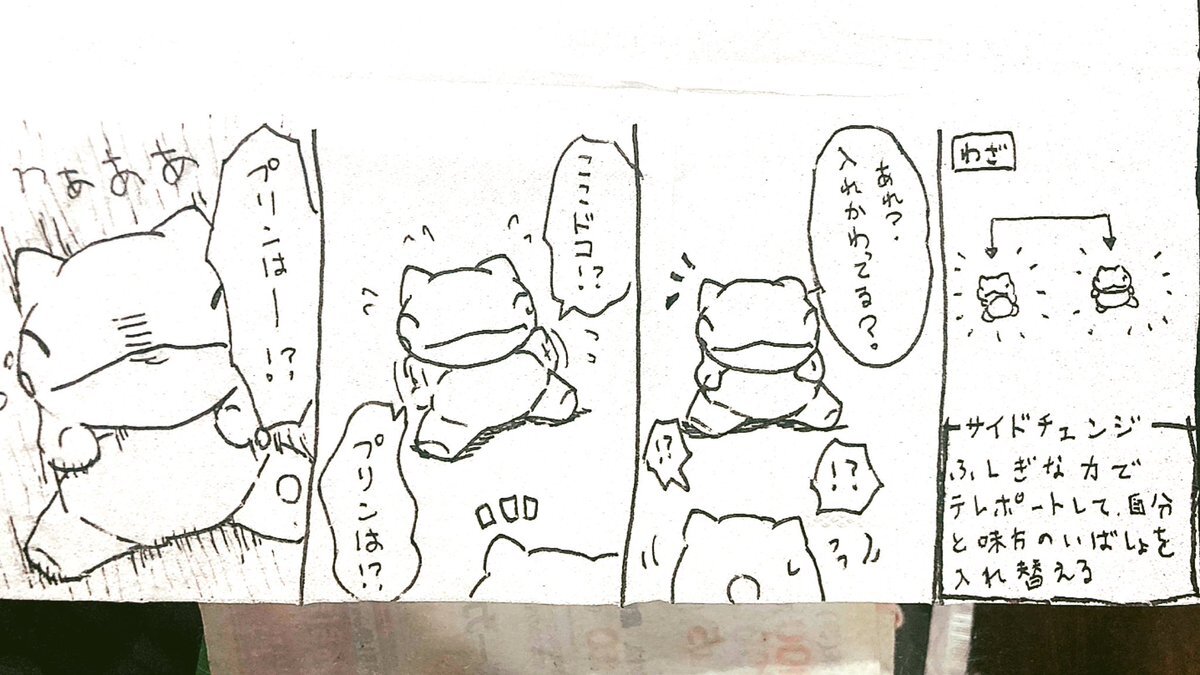 わざ
サイドチェンジ
ふしぎな力で
テレポートして、自分
と味方のいばしょを
入れ替える
あれ?
入れかわってる?
!?
!?
ここドコ!?
プリンは!?
プリンはー!?
わぁぁぁ